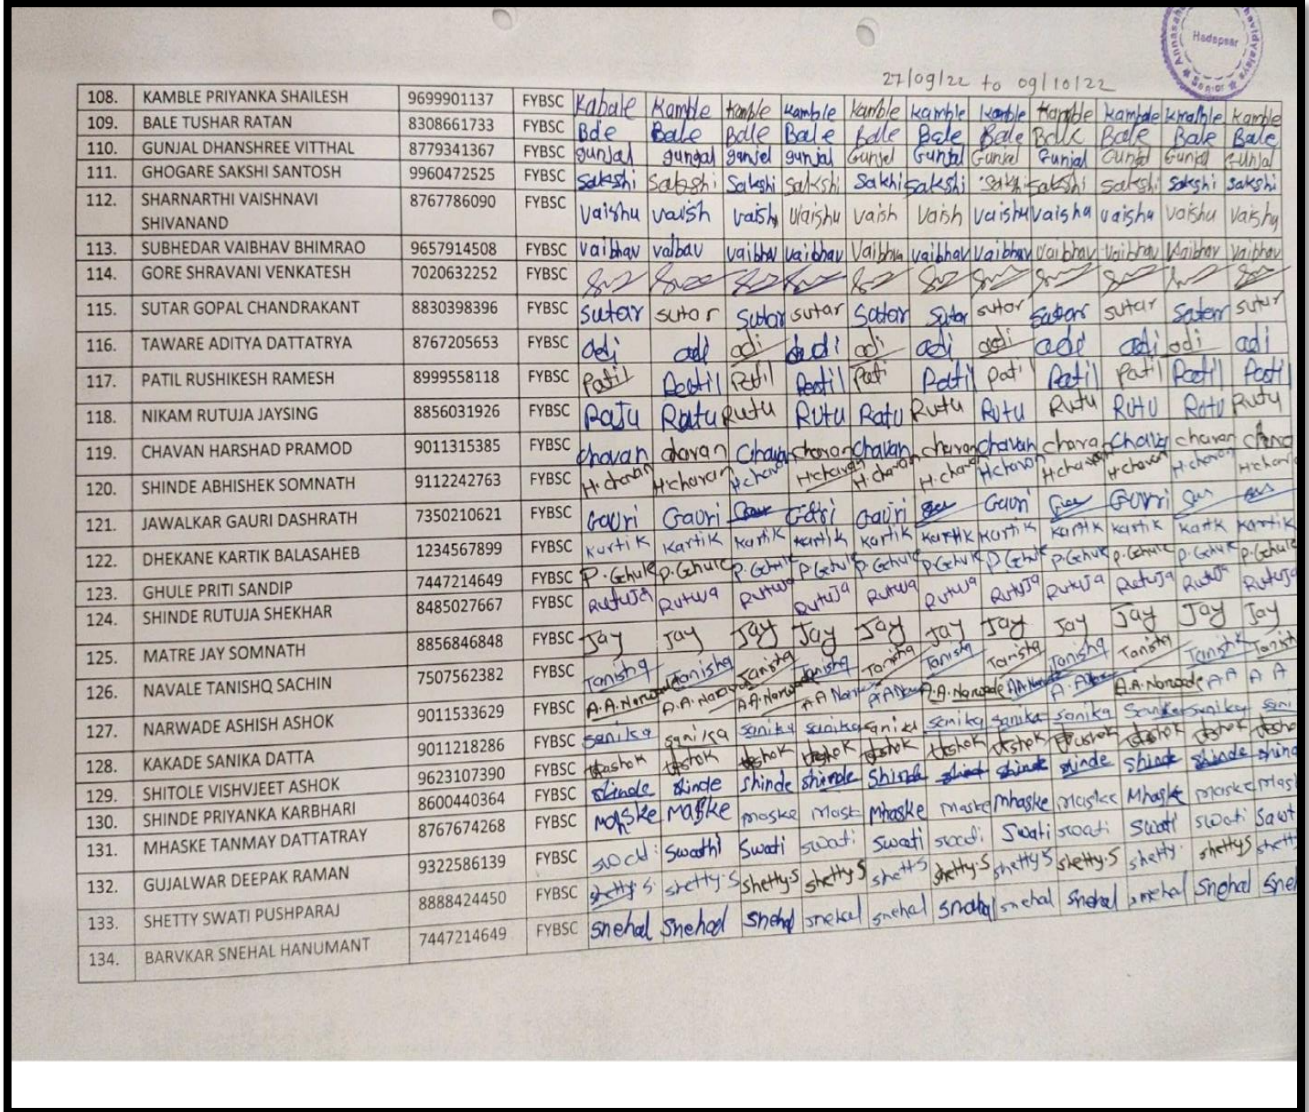 Annasah
avidyalaya
Hadapsar
27/09/22 to 09/10/22
108. KAMBLE PRIYANKA SHAILESH 9699901137 FYBSC Kabale Kamble Kamble Kamble Kamble Kamble Kamble Kamble Kamble Kamble
109. BALE TUSHAR RATAN 8308661733 FYBSC Bale Bale Bale Bale Bale Bale Bale Bale Bale
110. GUNJAL DHANSHREE VITTHAL 8779341367 FYBSC gunjal gungal gunjel gunjal Gunjal Gunjal Gunjal Gunjal Gunjal Gunjal
111. GHOGARE SAKSHI SANTOSH 9960472525 FYBSC Sakshi Sakshi Sakshi Sakshi Sakhi Sakshi Sakshi Sakshi Sakshi Sakshi Sakshi
112. SHARNARTHI VAISHNAVI 8767786090 FYBSC Vaishu vaish vaish Vaishu vaish Vaish vaishu vaisha vaishu vaishu vaishu
SHIVANAND
113. SUBHEDAR VAIBHAV BHIMRAO 9657914508 FYBSC Vaibhav vaibav vaibhav vaibhav Vaibhav vaibhav vaibhav Vaibhav Vaibhav Vaibhav Vaibhav
114. GORE SHRAVANI VENKATESH 7020632252 FYBSC
115. SUTAR GOPAL CHANDRAKANT 8830398396 FYBSC Sutar sutar Sutar sutar Sutar Sutar sutar Sutar sutar Sutar sutar
116. TAWARE ADITYA DATTATRYA 8767205653 FYBSC adi adi adi adi adi adi adi adi adi adi adi
117. PATIL RUSHIKESH RAMESH 8999558118 FYBSC Patil Patil Patil Patil Pati Patil pati Patil Patil Patil Patil
118. NIKAM RUTUJA JAYSING 8856031926 FYBSC Rutu Rutu Rutu Rutu Rutu Rutu Rutu Rutu RUTU Rutu Rutu
119. CHAVAN HARSHAD PRAMOD 9011315385 FYBSC Chavan chavan Chavan chavan Chavan chavan chavan chavan Chavan chavan
120. SHINDE ABHISHEK SOMNATH 9112242763 FYBSC H.chavan H.chavan H.chavan H.chavan H.chavan H.chavan H.chavan H.chavan H.chavan H.chavan H.chavan
121. JAWALKAR GAURI DASHRATH 7350210621 FYBSC Gauri Gauri Gauri Gauri Gauri Gauri
122. DHEKANE KARTIK BALASAHEB 1234567899 FYBSC Kartik Kartik Kartik Kartik Kartik Kartik Kartik Kartik Kartik Kartik Kartik
123. GHULE PRITI SANDIP 7447214649 FYBSC P.Ghule P.Ghule P.Ghule P.Ghule P.Ghule P.Ghule P.Ghule P.Ghule P.Ghule P.Ghule P.Ghule
124. SHINDE RUTUJA SHEKHAR 8485027667 FYBSC Rutuja Rutuja Rutuja Rutuja Rutuja Rutuja Rutuja Rutuja Rutuja Rutuja Rutuja
125. MATRE JAY SOMNATH 8856846848 FYBSC Jay Jay Jay Jay Jay Jay Jay Jay Jay Jay Jay
126. NAVALE TANISHQ SACHIN 7507562382 FYBSC Tanishq Tanishq Tanishq Tanishq Tanishq Tanishq Tanishq Tanishq Tanishq Tanishk Tanish
127. NARWADE ASHISH ASHOK 9011533629 FYBSC A.A.Narwade A.A.Narwade A.A.Narwade A.A.Narwade A.A.Narwade A A A A
128. KAKADE SANIKA DATTA 9011218286 FYBSC Sanika sanika sanika sanika sanika sanika sanika sanika Sanika sanika sani
129. SHITOLE VISHVJEET ASHOK 9623107390 FYBSC Ashok Ashok Ashok Ashok Ashok Ashok Ashok Ashok Ashok Ashok
130. SHINDE PRIYANKA KARBHARI 8600440364 FYBSC Shinde Shinde Shinde Shinde Shinde Shinde Shinde Shinde Shinde Shinde Shind
131. MHASKE TANMAY DATTATRAY 8767674268 FYBSC Mhaske Maske maske Mask Mhaske maske Mhaske maske Mhaske maske mas
132. GUJALWAR DEEPAK RAMAN 9322586139 FYBSC Swati Swathi Swati swati Swati swati Swati swati Swati swati Swat
133. SHETTY SWATI PUSHPARAJ 8888424450 FYBSC shetty.S shetty.S shetty.S shetty S shetty S shetty.S shetty S shetty.S shetty shetty S shett
134. BARVKAR SNEHAL HANUMANT 7447214649 FYBSC Snehal Snehal Snehal snehal snehal Snehal snehal Snehal snehal Snehal Sne